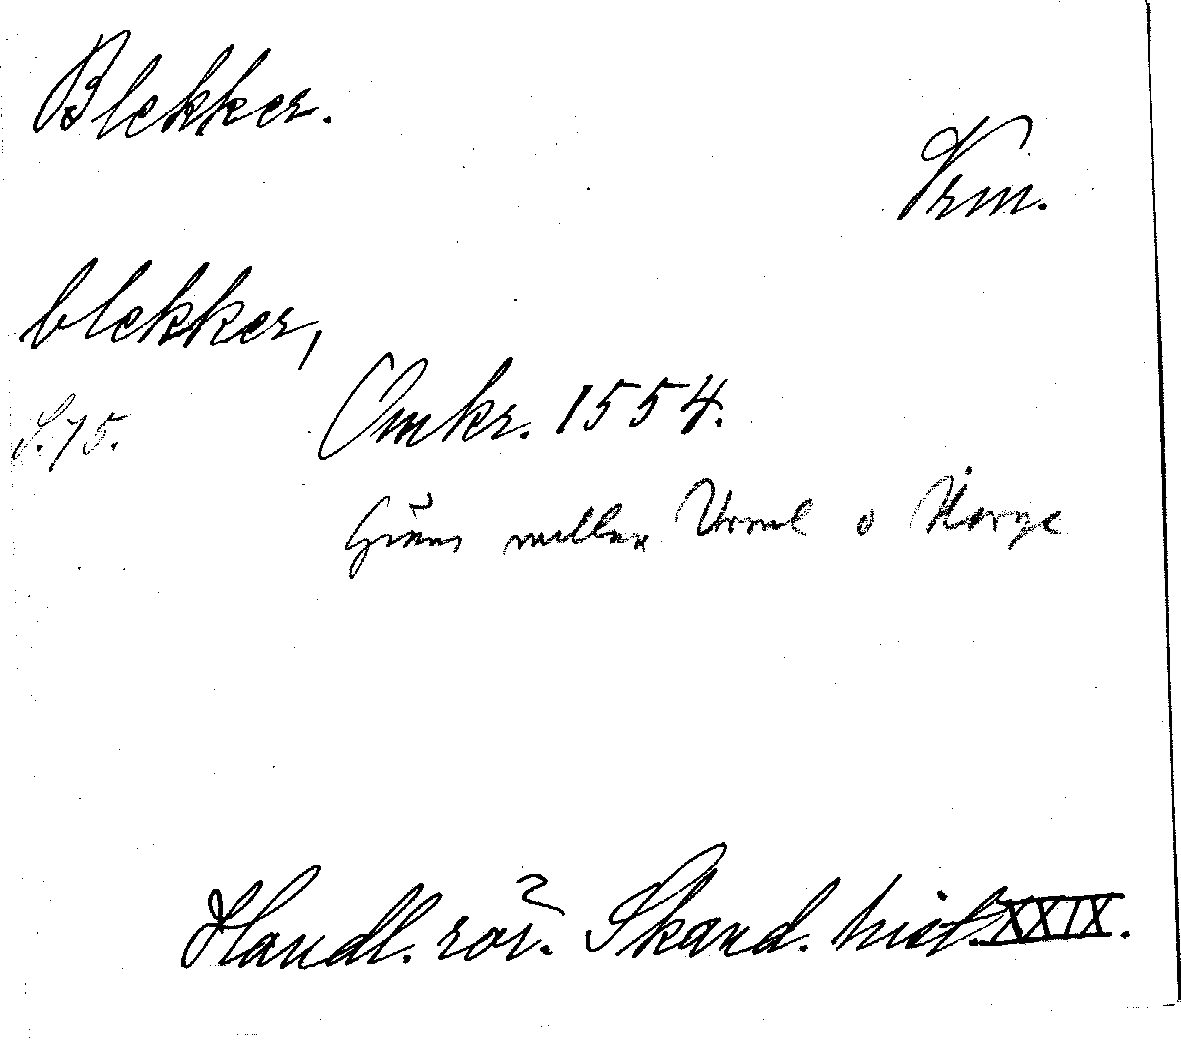 Blekker.
Vrm.
blekker,
S. 75.
Omkr. 1554.
Gräns mellan Vrml o Norge
Handl. rör. Skand. hist. XXIX.